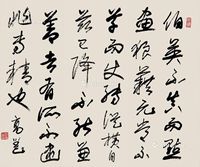 伯英不真而點
畫狼藉元常不
草而使轉縱橫自
茲已降不能兼
善者有所不逮
非專精也